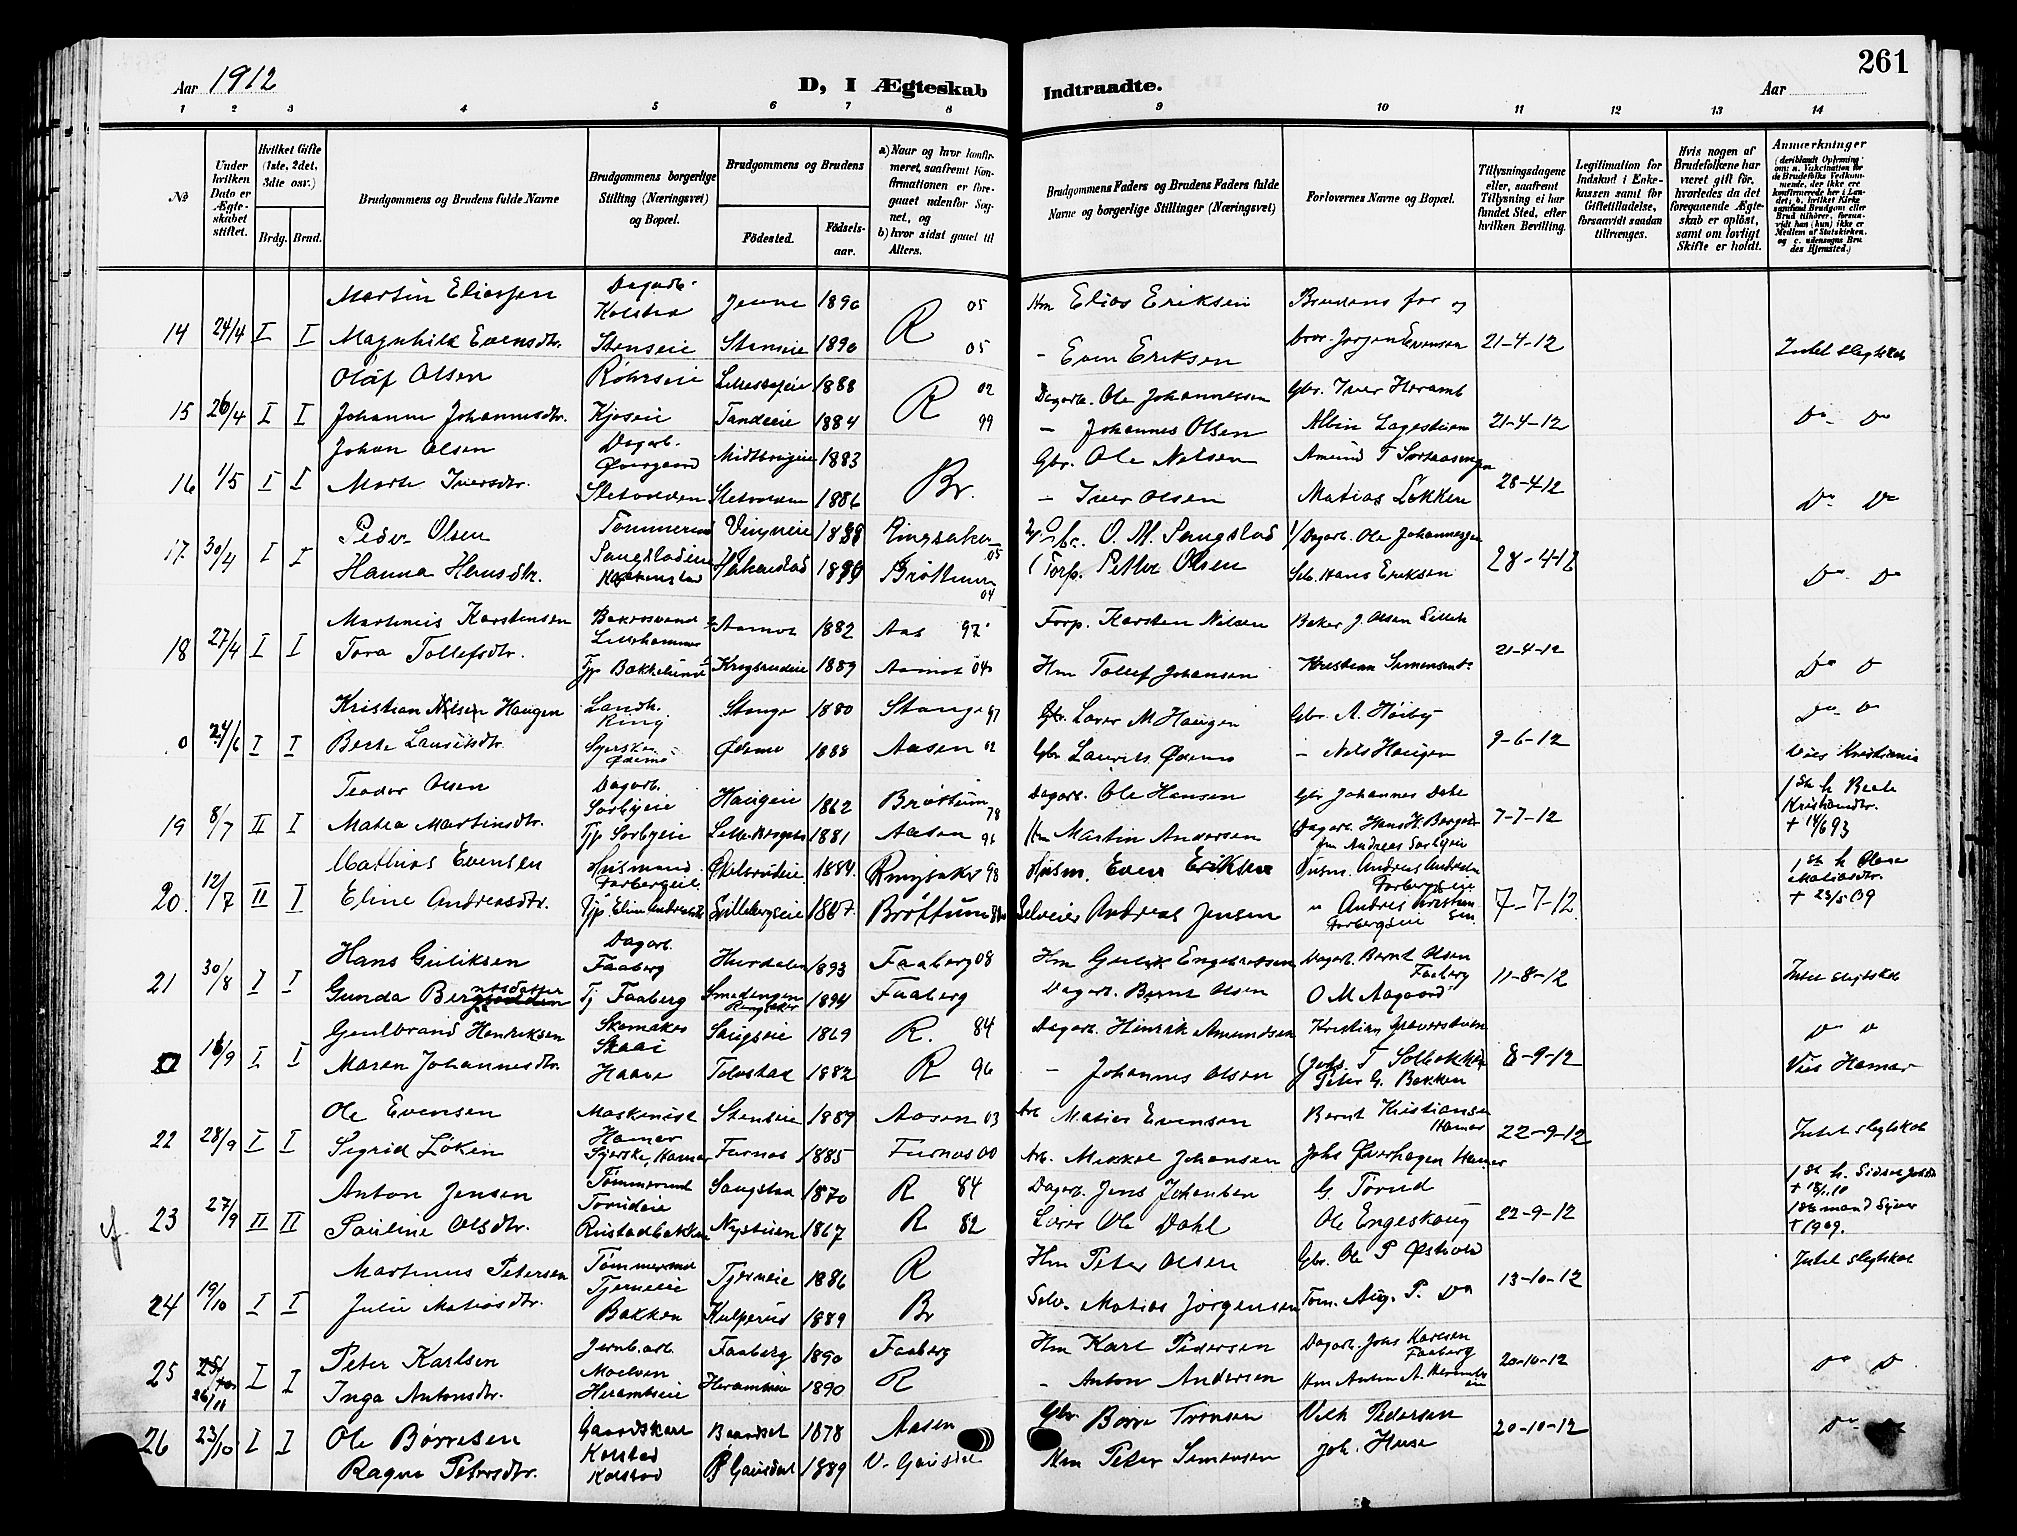 261
Aar 1912
D, I Ægteskab Indtraadte.
Aar
1 2 3 4 5 6 7 8 9 10 11 12 13 14
No
Under hvilken Dato er Ægteskabet stiftet.
Hvilket Gifte (1ste, 2det, 3die osv.)
Brdg. Brud.
Brudgommens og Brudens fulde Navne
Brudgommens borgerlige Stilling (Næringsvei) og Bopæl.
Brudgommens og Brudens
Fødested.
Fødselsaar.
a) Naar og hvor konfirmeret, saafremt Konfirmationen er foregaaet udenfor Sognet, og
b) hvor sidst gaaet til Alters.
Brudgommens Faders og Brudens Faders fulde Navne og borgerlige Stillinger (Næringsvei)
Forlovernes Navne og Bopæl.
Tillysningsdagene eller, saafremt Tillysning ei har fundet Sted, efter hvilken Bevilling.
Legitimation for Indskud i Enkekassen samt for Giftetilladelse, forsaavidt saadan tiltrænges.
Hvis nogen af Brudefolkene har været gift før, hvorledes da det foregaaende Ægteskab er opløst, samt om lovligt Skifte er holdt.
Anmærkninger
14 24/4 I I Martin Eliassen Dagarb. Kolstad 1890 R 05 Hm Elias Eriksen Brudens far og
Magnhild Evensdtr. Stenseie Stenseie 1890 05 - Even Eriksen bror Jørgen Evensen 21-4-12 Intet slegtskab
15 26/4 I I Olaf Olsen Røhrseie 1888 R 02 Dagarb. Ole Johannessen Gbr. Iver Heramb
Johanne Johannesdtr. Kjoseie Tandeeie 1884 99 - Johannes Olsen Albin Lagestuen 21-4-12 Do Do
16 1/5 I I Johan Olsen Dagarb. Øvergaard 1883 Br. Gbr. Ole Nilsen
Marte Iversdtr. Sletvolden Sletvolden 1886 - Iver Olsen Matias Løkken 28-4-12 Do Do
17. 30/4 I I Peder Olsen Tømmermd Ringsaker 05 O. M. Saugstad Dagarb. Ole Johannessen
Hanna Hansdtr. Brøttum 04 Torp. Petter Olsen Hans Eriksen 28-4-12 Do Do
18 27/4 I I Martinus Karstensen Lillehammer Aamot 1882 Aas 97 Forp. Karsten Nilsen Baker J. Olsen
Tora Tollefsdtr. Tjp Bakkelund 1889 Aamot 04 Hm Tollef Johansen Kristian Simensen 21-4-12 Do D
0 24/6 I I Kristian Nilsen Haugen Landh. Ring Stange 1880 Stange 97 Lærer M Haugen Gbr. A. Høiby Do D
Berte Lauritsdtr. Syerske Ødemo Ødemo 1888 Aasen 02 Gbr Laurits Ødemo - Nels Haugen 9-6-12 Vies Kristiania
19 8/7 II I Teodor Olsen Dagarb. Sørbyeie Haugeie 1862 Brøttum 78 Dagarb. Ole Hansen Gbr Johannes Dahl
Matea Martinsdtr. Tjp Sørbyeie 1881 Aasen 96 Hm Martin Andersen Dagarb. Hans H. Berger Hm Andreas Sørbyeie 7-7-12
1ste h Beate Kristiansdtr. + 14/6 93
20. 12/7 II I Mathias Evensen Husmand Farbergeie 1884. Ringsaker 98 Husm. Even Eriksen Husm. Andreas Andersen Farbergseie
Eline Andreasdtr. 1867. Brøttum Selveier Andreas Jensen Farbergseie 7-7-12.
1ste h Oline Matiasdtr. + 23/5 09
21 30/8 I I Hans Guliksen Dagarb. Faaberg Hurdalen 1893 Faaberg 08 Hm Gulik Engebretsen Dagarb. Bernt Olsen Faaberg
Gunda Berntsdatter Tj Faaberg Smedengen Ringsaker 1894 Faaberg Dagarb. Bernt Olsen O M Aagaard 11-8-12 Intet slegtskab
16/9 I I Gudbrand Henriksen Skomaker Skaai Saugseie 1869 R. 84 Dagarb. Hinrik Amundsen Kristian Do D
Maren Johannesdtr. Haave Tolvstad 1882 R 96 - Johannes Olsen Johs. T Solbakken Peter G. Bakken 8-9-12 Vies Hamar
22 28/9 I I Ole Evensen Maskinist Hamar Stenseie 1889 Aasen 03 Arb Matias Evensen Bernt Kristiansen Hamar
Sigrid Løken Syerske, Hamar Furnes 1885 Furnes 00 Arb. Mikkel Johansen Johs Øverhagen Hamar 22-9-12 Intet slegtskab
23 27/9 II II Anton Jensen Tømmermd Torudeie Saugstad 1870 R 84 Dagarb. Jens Johansen G. Torud
Pauline Olsdtr. Rustadbakken Nystuen 1867 R 82 Lærer Ole Dahl Ole Engeskaug 22-9-12
1ste h. Sidsel + 18/1.10 1ste mand Syver + 1909.
24 19/10 I I Martinus Petersen Tømmermd Tjerneie Tjerneie 1886 R Hm Peter Olsen Gbr. Ole P. Østvold
Julie Matiasdtr. Bakken Kulperud 1889 Br Selv. Matias Jørgensen Tom. Aug. P. Do 13-10-12 Intet slegtskab
25 26/11 I I Peter Karlsen Jernb.arb. Moelven Faaberg 1890 Faaberg Hm Karl Pedersen Dagarb. Johs Karlsen Faaberg
Inga Antonsdtr. Herambseie Herambseie 1890 R - Anton Andersen Hm Anton A. 20-10-12 Do D
26 23/10 I I Ole Børresen Gaardskarl Kolstad Baardset 1878 Aasen Gbr Børre Tronsen Vilh Pedersen
Ragna Petersdtr. Kolstad Ø Gausdal 1889 V. Gausdal Hm Peter Simensen Joh. Huse 20-10-12 Do